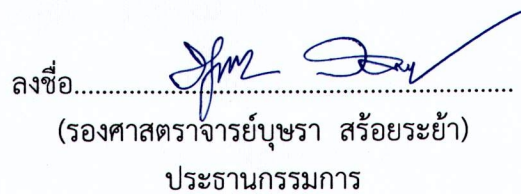 ลงชื่อ....................................................................
(รองศาสตราจารย์บุษรา สร้อยระย้า)
ประธานกรรมการ